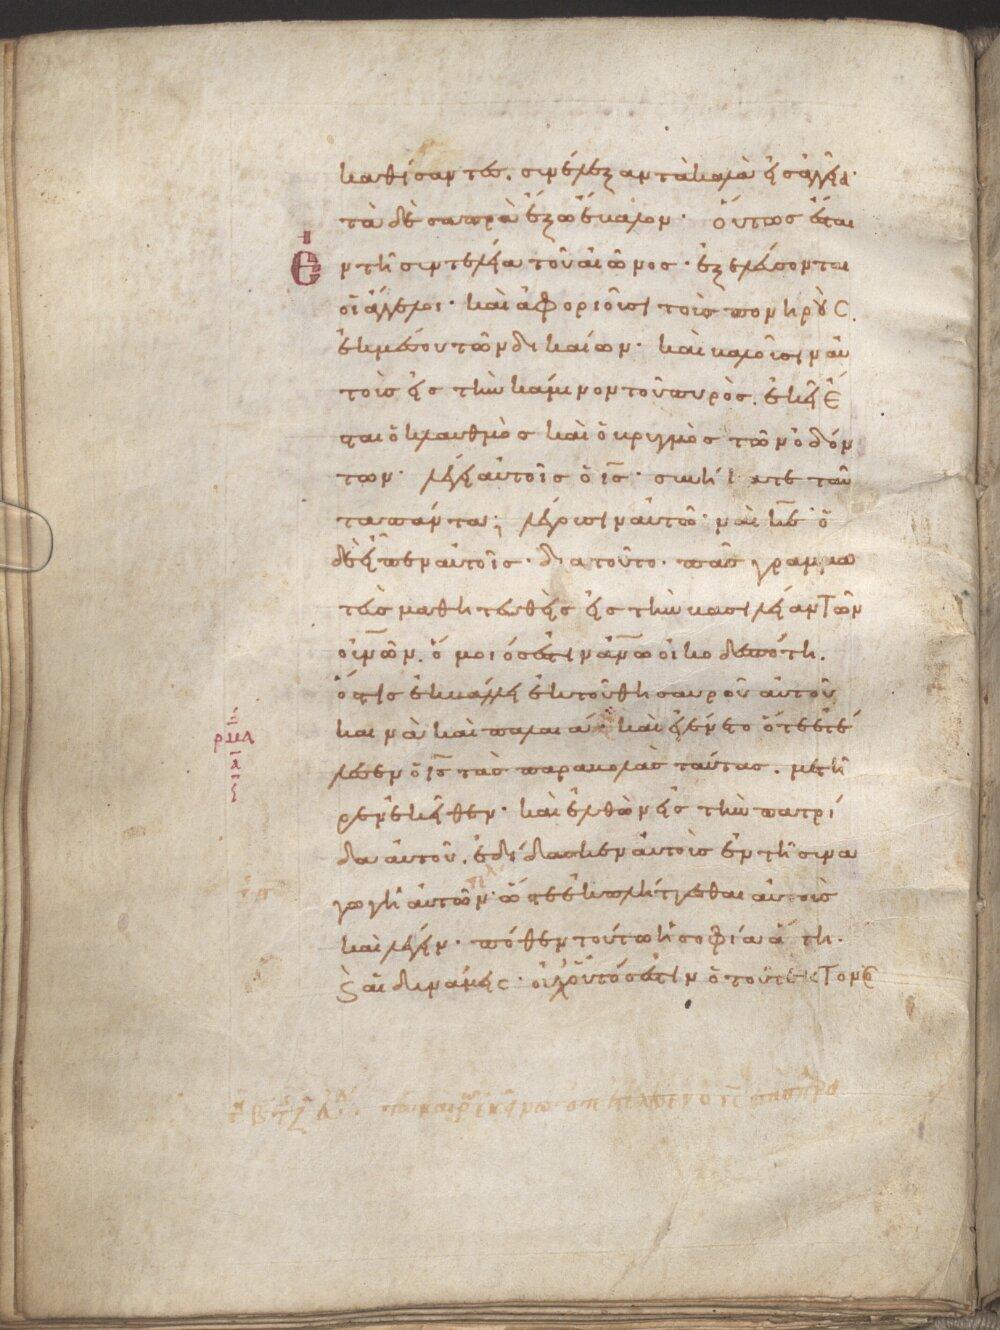 καθίσαντες. συνέλεξαν τὰ καλὰ εἰς ἀγγεῖα·
τὰ δὲ σαπρὰ ἔξω ἔβαλον· οὕτως ἔσται
Εν τῆ συντελεία τοῦ αἰῶνος· ἐξελεύσονται
οἱ ἄγγελοι· καὶ ἀφοριοῦσι τοὺς πονηροὺς.
ἐκ μέσου τῶν δικαίων· καὶ βαλοῦσιν αὐ
τοὺς εἰς τὴν κάμινον τοῦ πυρὸς. ἐκεῖ ἔ
σται ὁ κλαυθμὸς καὶ ὁ βρυγμὸς τῶν ὀδόν
των· λέγει αὐτοῖς ὁ ις· συνήκατε ταῦ
τα πάντα; λέγουσιν αὐτῶ· ναὶ κε· ὁ
δὲ εἶπεν αὐτοῖς· διατοῦτο· πᾶς γραμμα
τεὺς μαθητευθεὶς εἰς τὴν βασιλείαν τῶν
οὐνῶν. ὅμοιός ἐστιν ἀνω οἰκοδεσπότη.
ὅστις ἐκβάλλει ἐκ τοῦ θησαυροῦ αὐτοῦ
καινὰ καὶ παλαιά· καὶ ἐγένετο ὅτε ἐτέ
ρμα
λεσεν ὁ ις τὰς παραβολὰς ταύτας. μετῆ
ρεν ἐκεῖθεν· καὶ ἐλθὼν εἰς τὴν πατρί
δα αὐτοῦ. ἐδίδασκεν αὐτοὺς ἐν τῆ συνα
γωγῆ αὐτῶν· ὥστε ἐκπλήττεσθαι αὐτοὺς
καὶ λέγειν· πόθεν τούτω ἡ σοφία αὕτη.
καὶ αἱ δυνάμεις· οὐχ οὗτός ἐστιν ὁ τοῦ τέκτονος